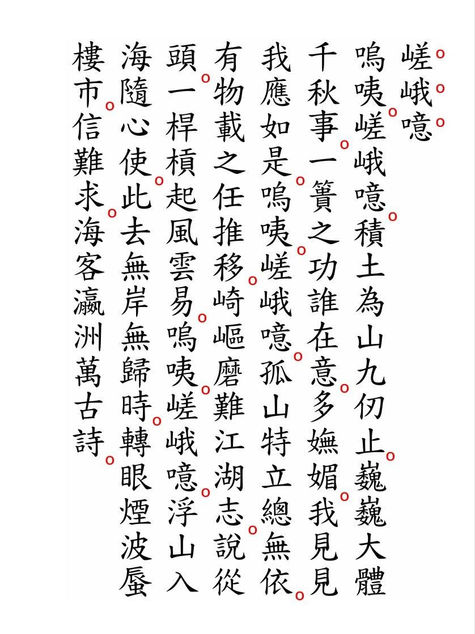 嵯。峨。噫。
嗚咦。嵯峨噫。積土為山九仞止。巍巍大體
千秋事。一簣之功誰在意。多嫵媚。我見見
我應如是。嗚咦。嵯峨噫。孤山特立總無依。
有物載之任推移。崎嶇磨難江湖志。說從
頭。一桿槓起風雲易。嗚咦。嵯峨噫。浮山入
海隨心使。此去無岸無歸時。轉眼煙波蜃
樓市。信難求。海客瀛洲萬古詩。